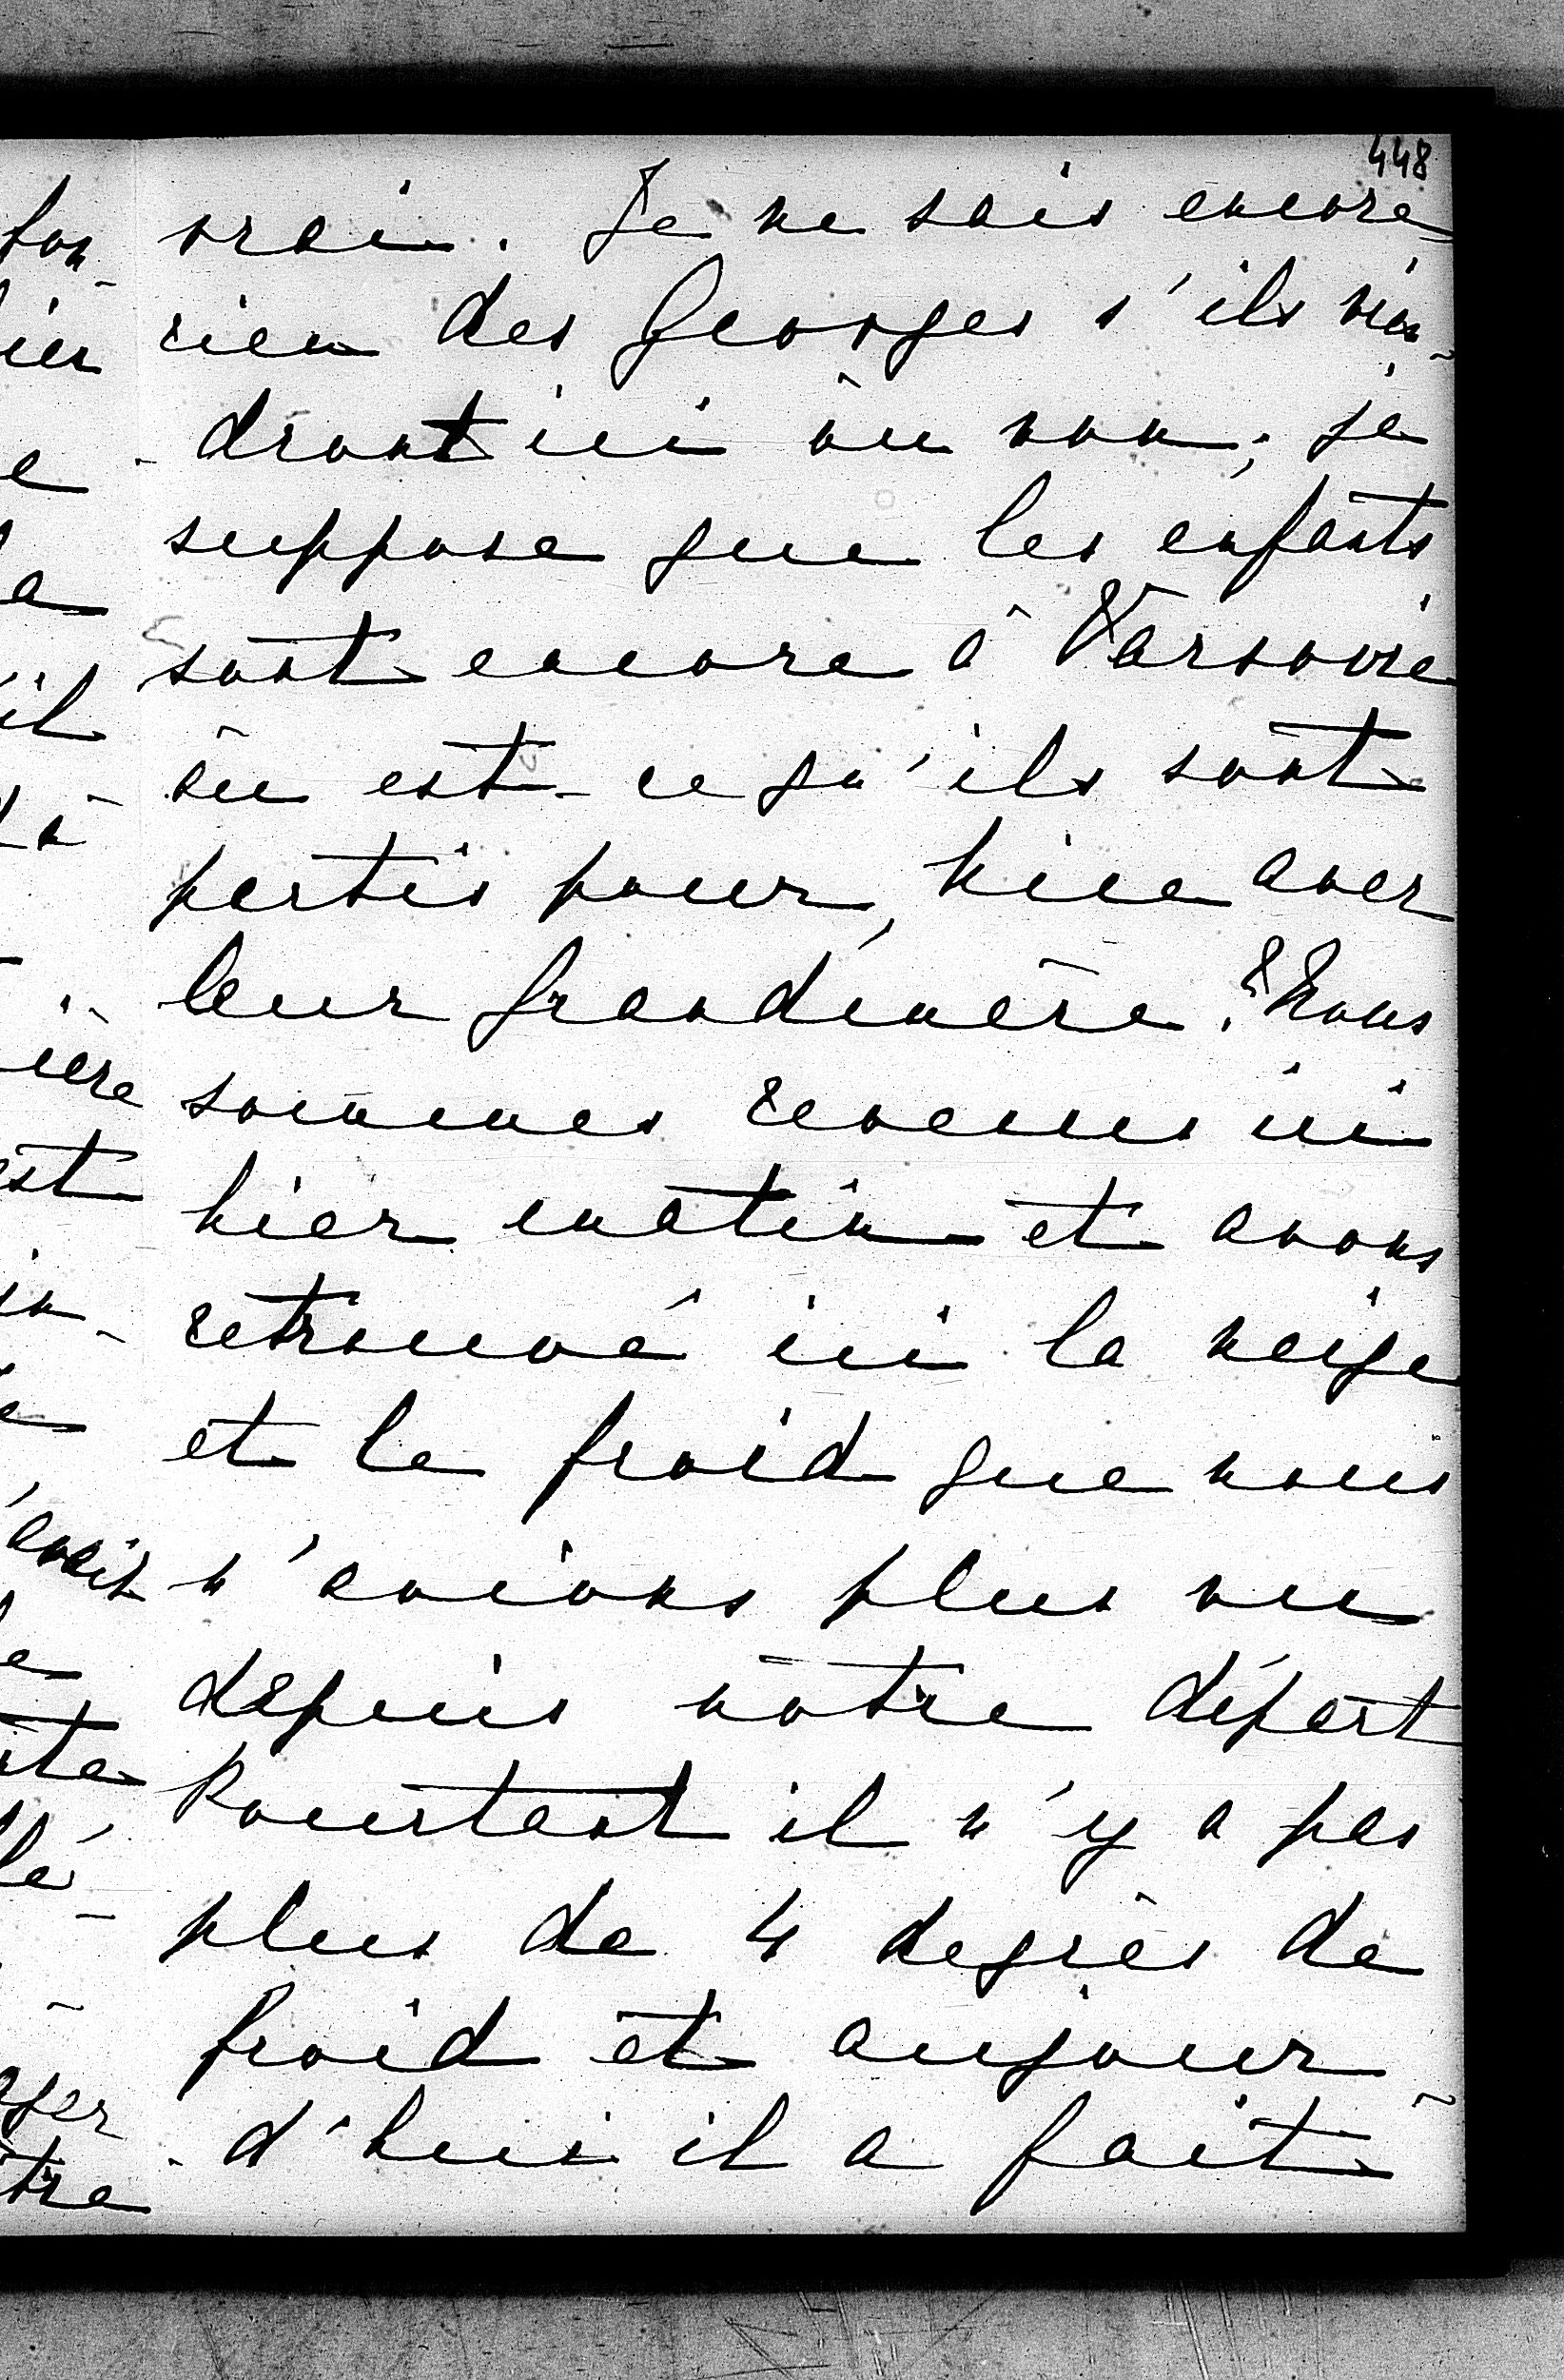 448
vrai. Je ne sais encore
rien des Georges s'ils vien-
-dront ici ou non; je
suppose que les enfants
sont encore à Varsovie
ou est-ce qu'ils sont
partis pour Nice avec
leur grandmère? Nous
sommes revenus ici
hier matin et avons
retrouvé ici la neige
et le froid que nous
n'avions plus vu
depuis notre départ
Pourtant il n'y a pas
plus de 4 degrès de
froid et aujour-
-d'hui il a fait